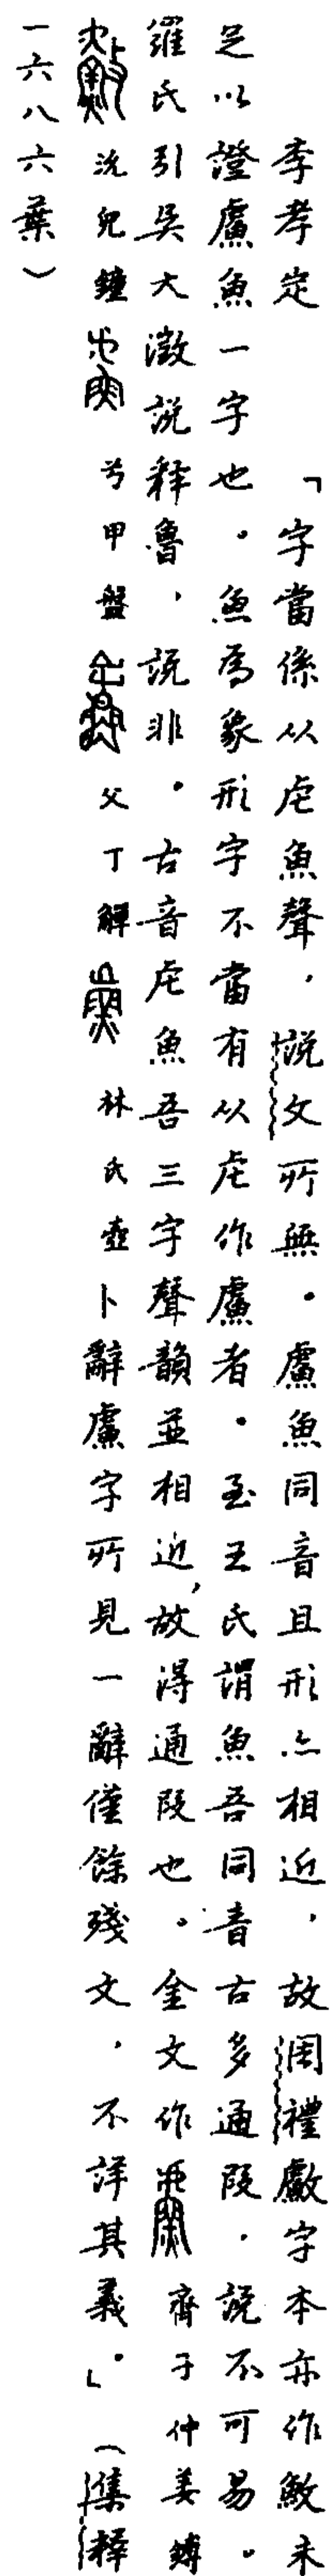 李孝定　「字當係从虍魚聲，說文所無。䲣魚同音且形亦相近，故周禮𩼪字本亦作䱷未
足以證䲣魚一字也。魚為象形字不當有从虍作䲣者。至王氏謂魚吾同音古多通叚，說不可易。
羅氏引吳大澂說釋魯，說非。古音虍魚吾三字聲韻並相近，故得通叚也。金文作 齊子仲姜鎛
沇兒鐘 兮甲盤 父丁觶 林氏壺卜辭䲣字所見一辭僅餘殘文，不詳其義。」（集釋
一六八六葉）